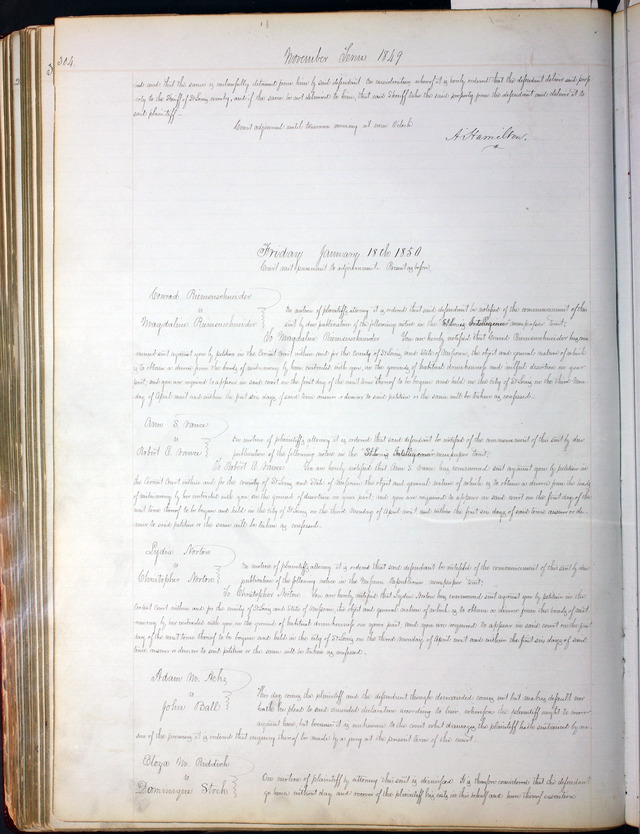 304.
November Term 1849
and and that the same is unlawfully detained from him by said defendant. On consideration whereof it is hereby ordered that the defendant deliver said prop
erty to the Sheriff of St Louis county, and if the same is not delivered to him, that said Sheriff take the said property from the defendant and deliver it to
said plaintiff.
Court adjourned until tomorrow morning at nine Oclock
A. Hamilton.
Friday January 18th 1850
Court met pursuant to adjournment. Present as before.
Conrad Riemenschneider
vs
Magdalene Riemenschneider
On motion of plaintiffs attorney it is ordered that said defendant be notified of the commencement of this
suit by due publication of the following notice in the "St Louis Intelligencer" newspaper "towit;
To Magdalene Riemenschneider You are hereby notified that Conrad Riemenschneider has com
menced suit against you by petition in the Circuit Court within and for the county of St Louis and State of Missouri, the object and general nature of which
is to obtain a divorce from the bonds of matrimony by him contracted with you, on the grounds of habitual drunkenness and wilful desertion on your
part, and you are required to appear in said court on the first day of the next term thereof to be begun and held in the city of St Louis on the third Mon
day of April next and within the first six days of said term answer or demur to said petition or the same will be taken as confessed.
Ann S. Vance
vs
Robert E. Vance
On motion of plaintiffs attorney it is ordered that said defendant be notified of the commencement of this suit by due
publication of the following notice in the "St Louis Intelligencer" newspaper "towit;
To Robert E. Vance You are hereby notified that Ann S. Vance has commenced suit against you by petition in
the Circuit Court within and for the county of St Louis and State of Missouri the object and general nature of which is to obtain a divorce from the bonds
of matrimony by her contracted with you on the ground of desertion on your part; and you are required to appear in said court on the first day of the
next term thereof to be begun and held in the city of St Louis on the third Monday of April next and within the first six days of said term answer or de-
mur to said petition or the same will be taken as confessed.
Lydia Norton
vs
Christopher Norton
On motion of plaintiffs attorney it is ordered that said defendant be notified of the commencement of this suit by due
publication of the following notice in the Missouri Republican newspaper "towit;
To Christopher Norton You are hereby notified that Lydia Norton has commenced suit against you by petition in the
Circuit Court within and for the county of St Louis and State of Missouri, the object and general nature of which is to obtain a divorce from the bonds of matri
mony by her contracted with you on the ground of habitual drunkenness on your part, and you are required to appear in said court on the first
day of the next term thereof to be begun and held in the city of St Louis on the third Monday of April next and within the first six days of said
term answer or demur to said petition or the same will be taken as confessed.
Adam M.
vs
John Ball
This day comes the plaintiff and the defendant though demanded comes not but making default nor
hath he plead to said amended declaration according to law, wherefore the plaintiff ought to recover
against him, but because it is unknown to the court what damages the plaintiff hath sustained by rea
son of the premises it is ordered that inquiry thereof be made by a jury at the present term of this court.
Eliza M. Riddick
vs
Dominique Stock
On motion of plaintiff by attorney this suit is dismissed. It is therefore considered that the defendant
go hence without day and recover of the plaintiff his costs in this behalf and have thereof execution